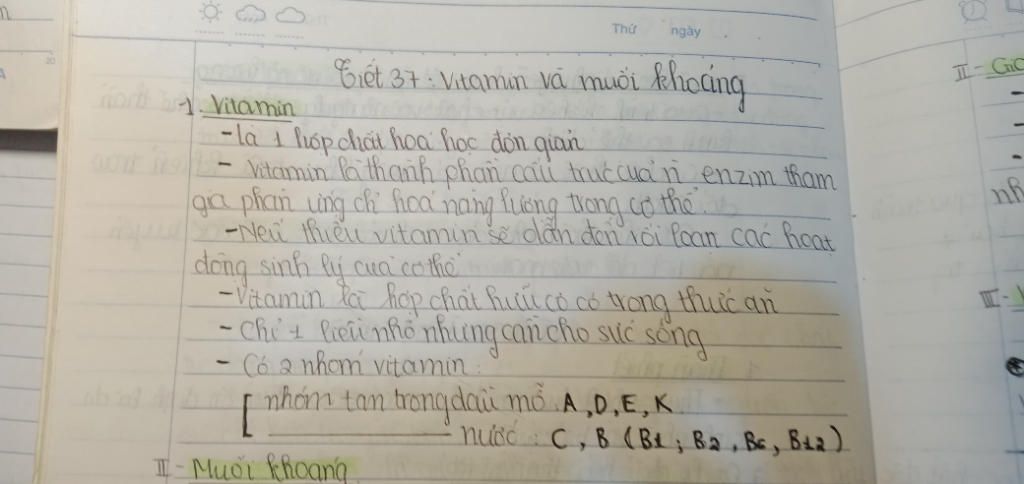 Thứ ngày
Tiết 37: Vitamin và muối khoáng
I. Vitamin
- là 1 hợp chất hoá học đơn giản
- Vitamin là thành phần cấu trúc của n` enzim tham
gia phản ứng ch` hoá năng lượng trong cơ thể.
- Nếu thiếu vitamin sẽ dẫn đến rối loạn các hoạt
động sinh lý của cơ thể
- Vitamin là hợp chất hữu cơ có trong thức ăn
- Chỉ 1 liều nhỏ nhưng cần cho sức sống
- Có 2 nhóm vitamin:
[ nhóm tan trong dầu mỡ: A, D, E, K
nước: C, B (B1; B2, B6, B12)
II - Muối khoáng
II -
-
-
-
nh
III -